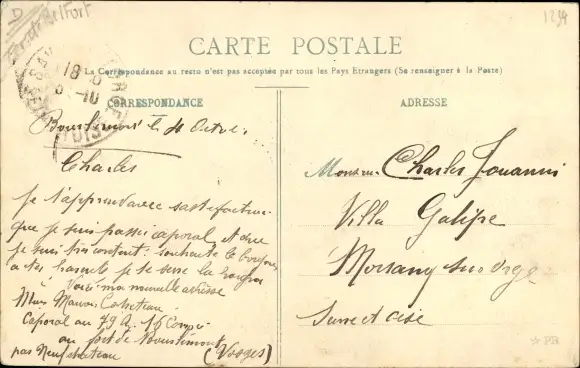 D
Territ Belfort
1294
CARTE POSTALE
La Correspondance au recto n'est pas acceptée par tous les Pays Etrangers (Se renseigner à la Poste)
CORRESPONDANCE
Bourlémont le 4 Octobre
Charles
Je t'apprend avec satisfaction
que je suis passé caporal, et que
je suis très content: souhaite le bonjour
à tes je te serre la
Voici ma nouvelle adresse
Mus Maurois
Caporal au 79 R. 16 Comp
au fort de Bourlémont
par Neufchateau (Vosges)
ADRESSE
Monsieur Charles Jouannin
Villa Galipe
Morsang sur Orge
Seine et Oise
PB